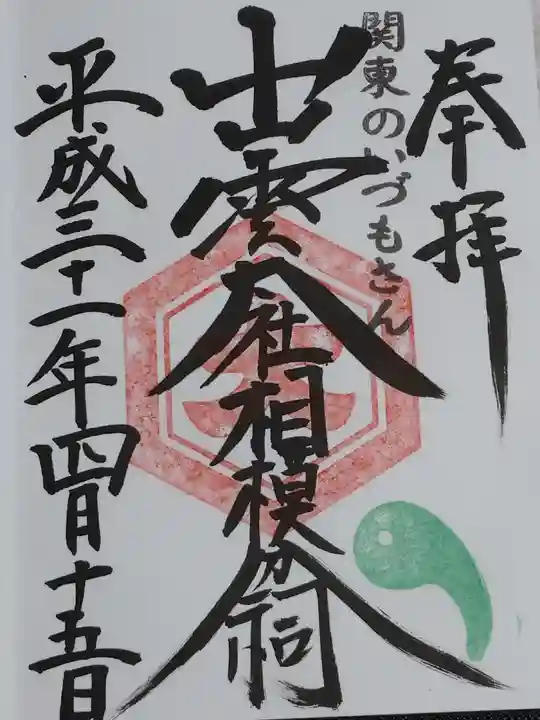 奉拝
関東のいづもさん
出雲大社相模分祠
平成三十一年四月十五日